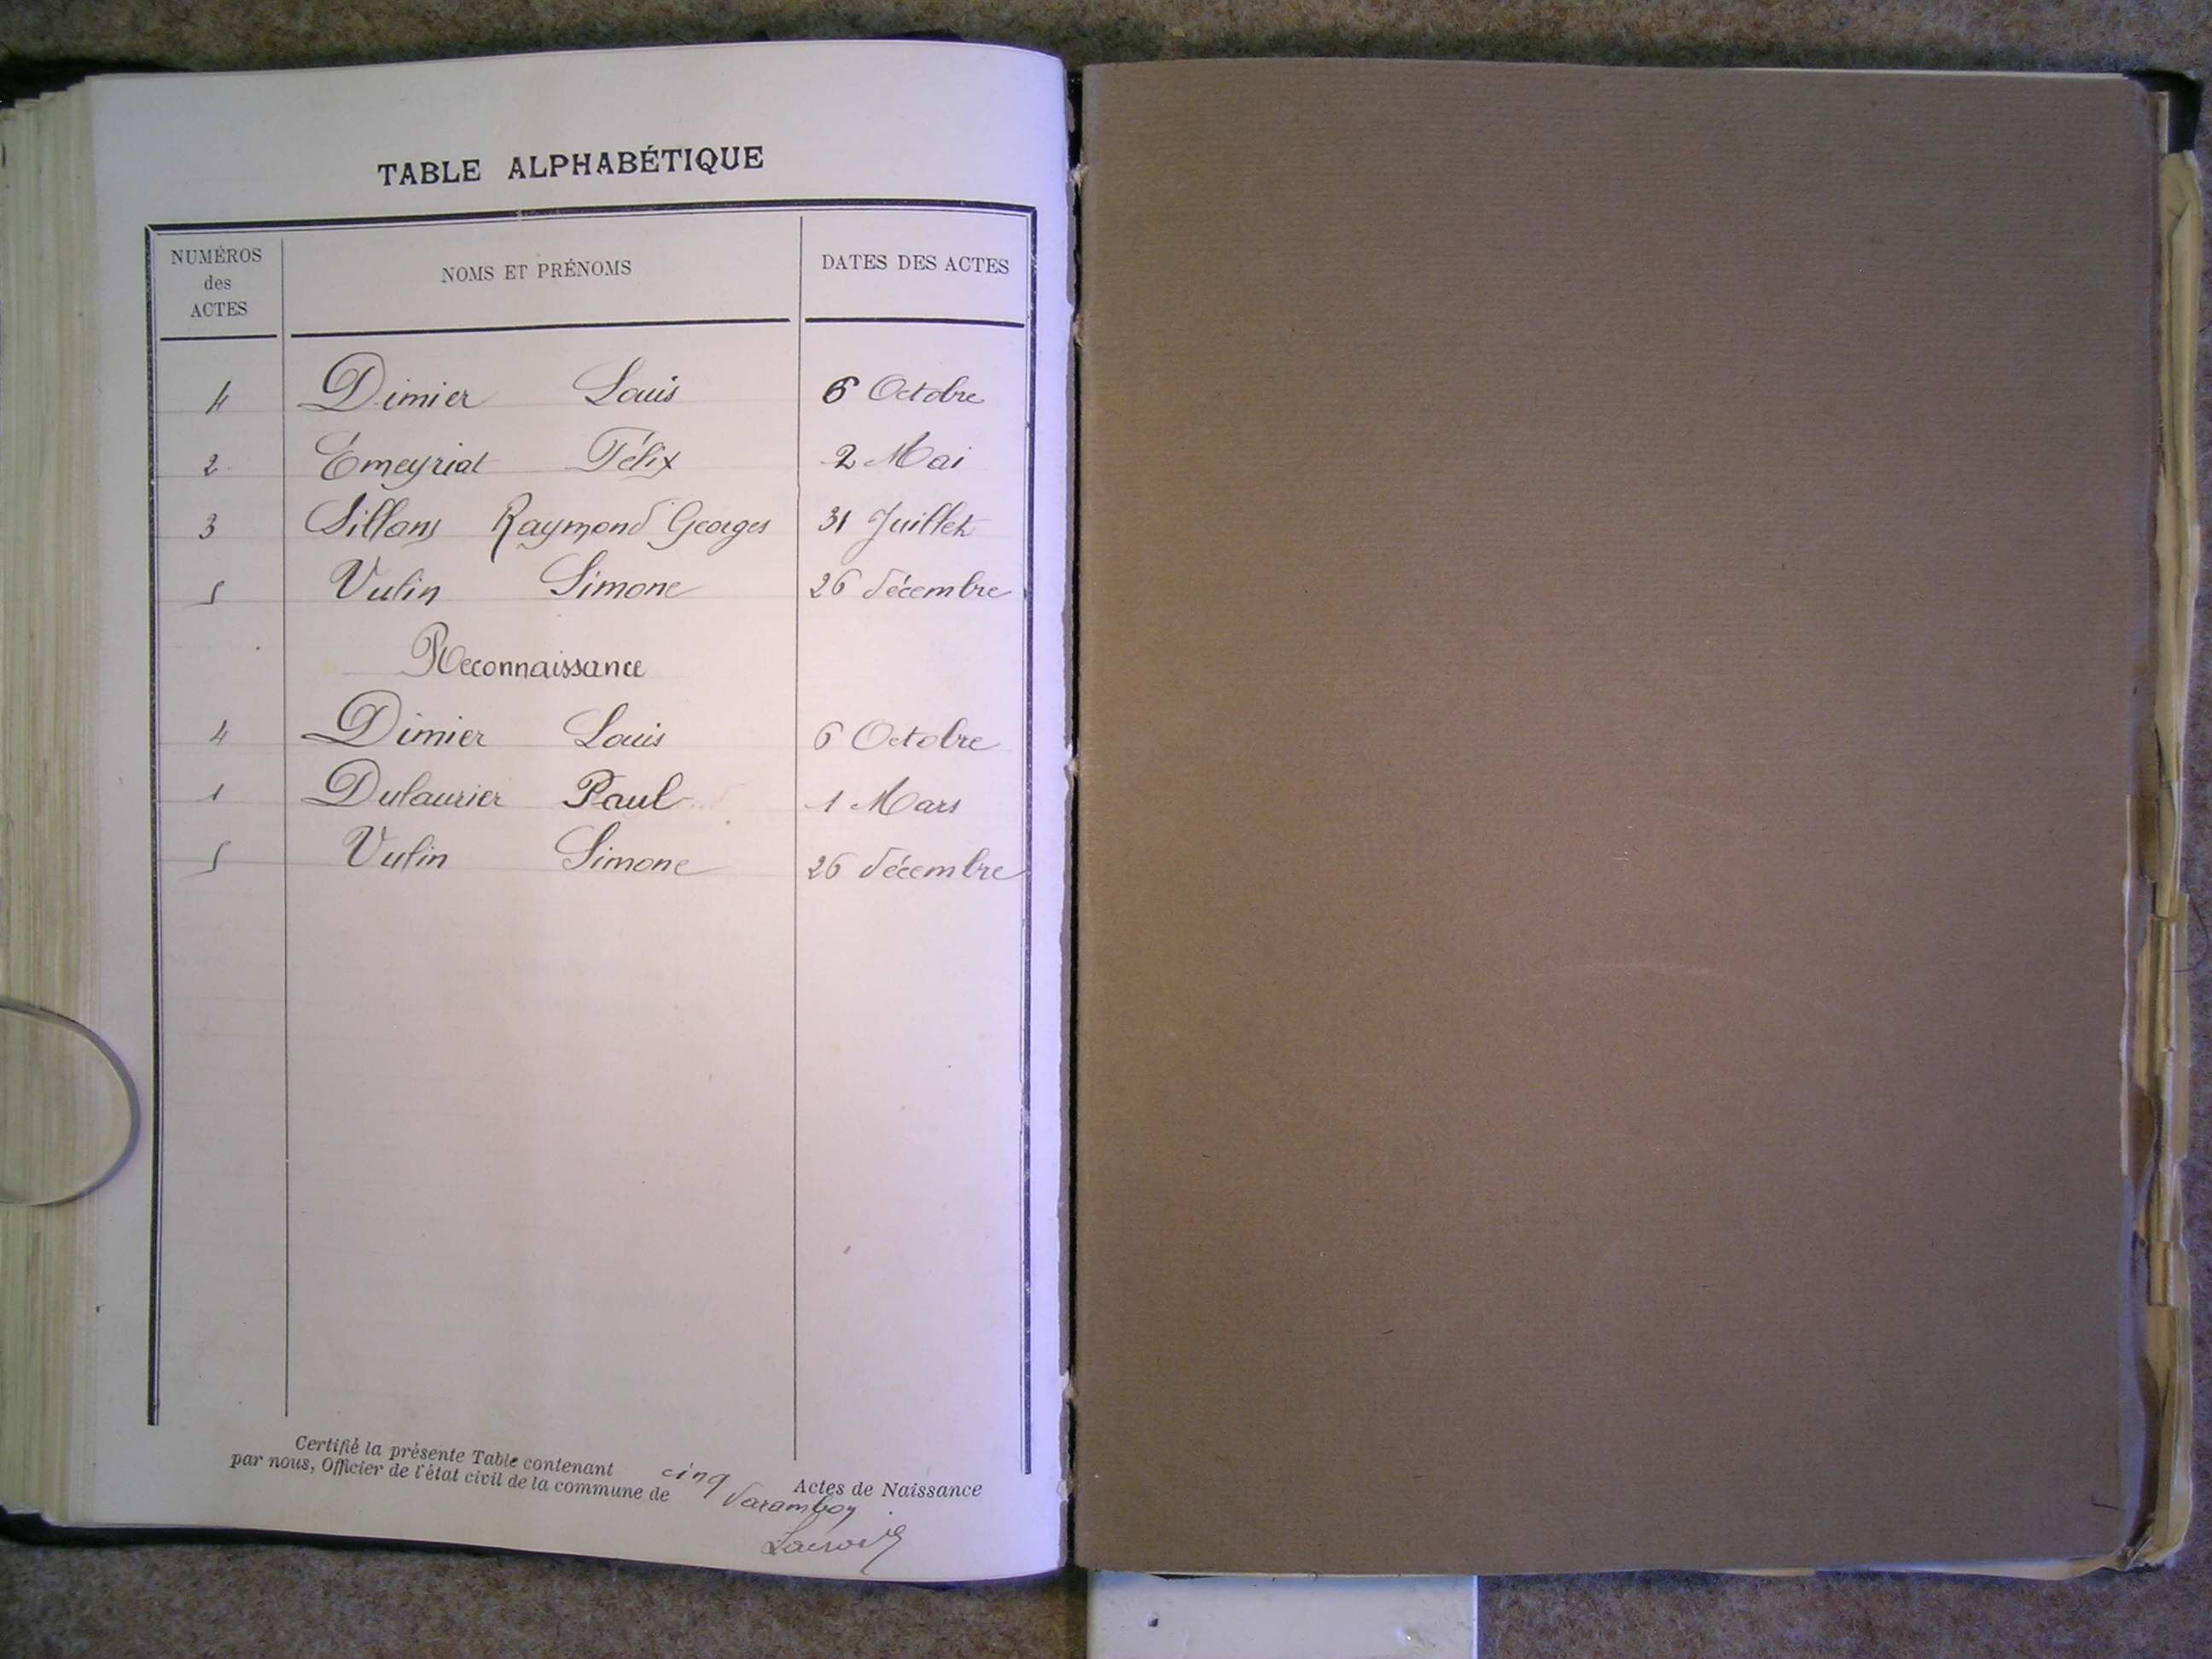 TABLE ALPHABÉTIQUE
NUMÉROS des ACTES NOMS ET PRÉNOMS DATES DES ACTES
4 Dimier Louis 6 Octobre
2 Émeyriat Félix 2 Mai
3 Sillans Raymond Georges 31 Juillet
5 Vulin Simone 26 décembre
Reconnaissance
4 Dimier Louis 6 Octobre
1 Dulaurier Paul 1 Mars
5 Vulin Simone 26 décembre
Certifié la présente Table contenant cinq Actes de Naissance
par nous, Officier de l'état civil de la commune de Varambon
Lacroix